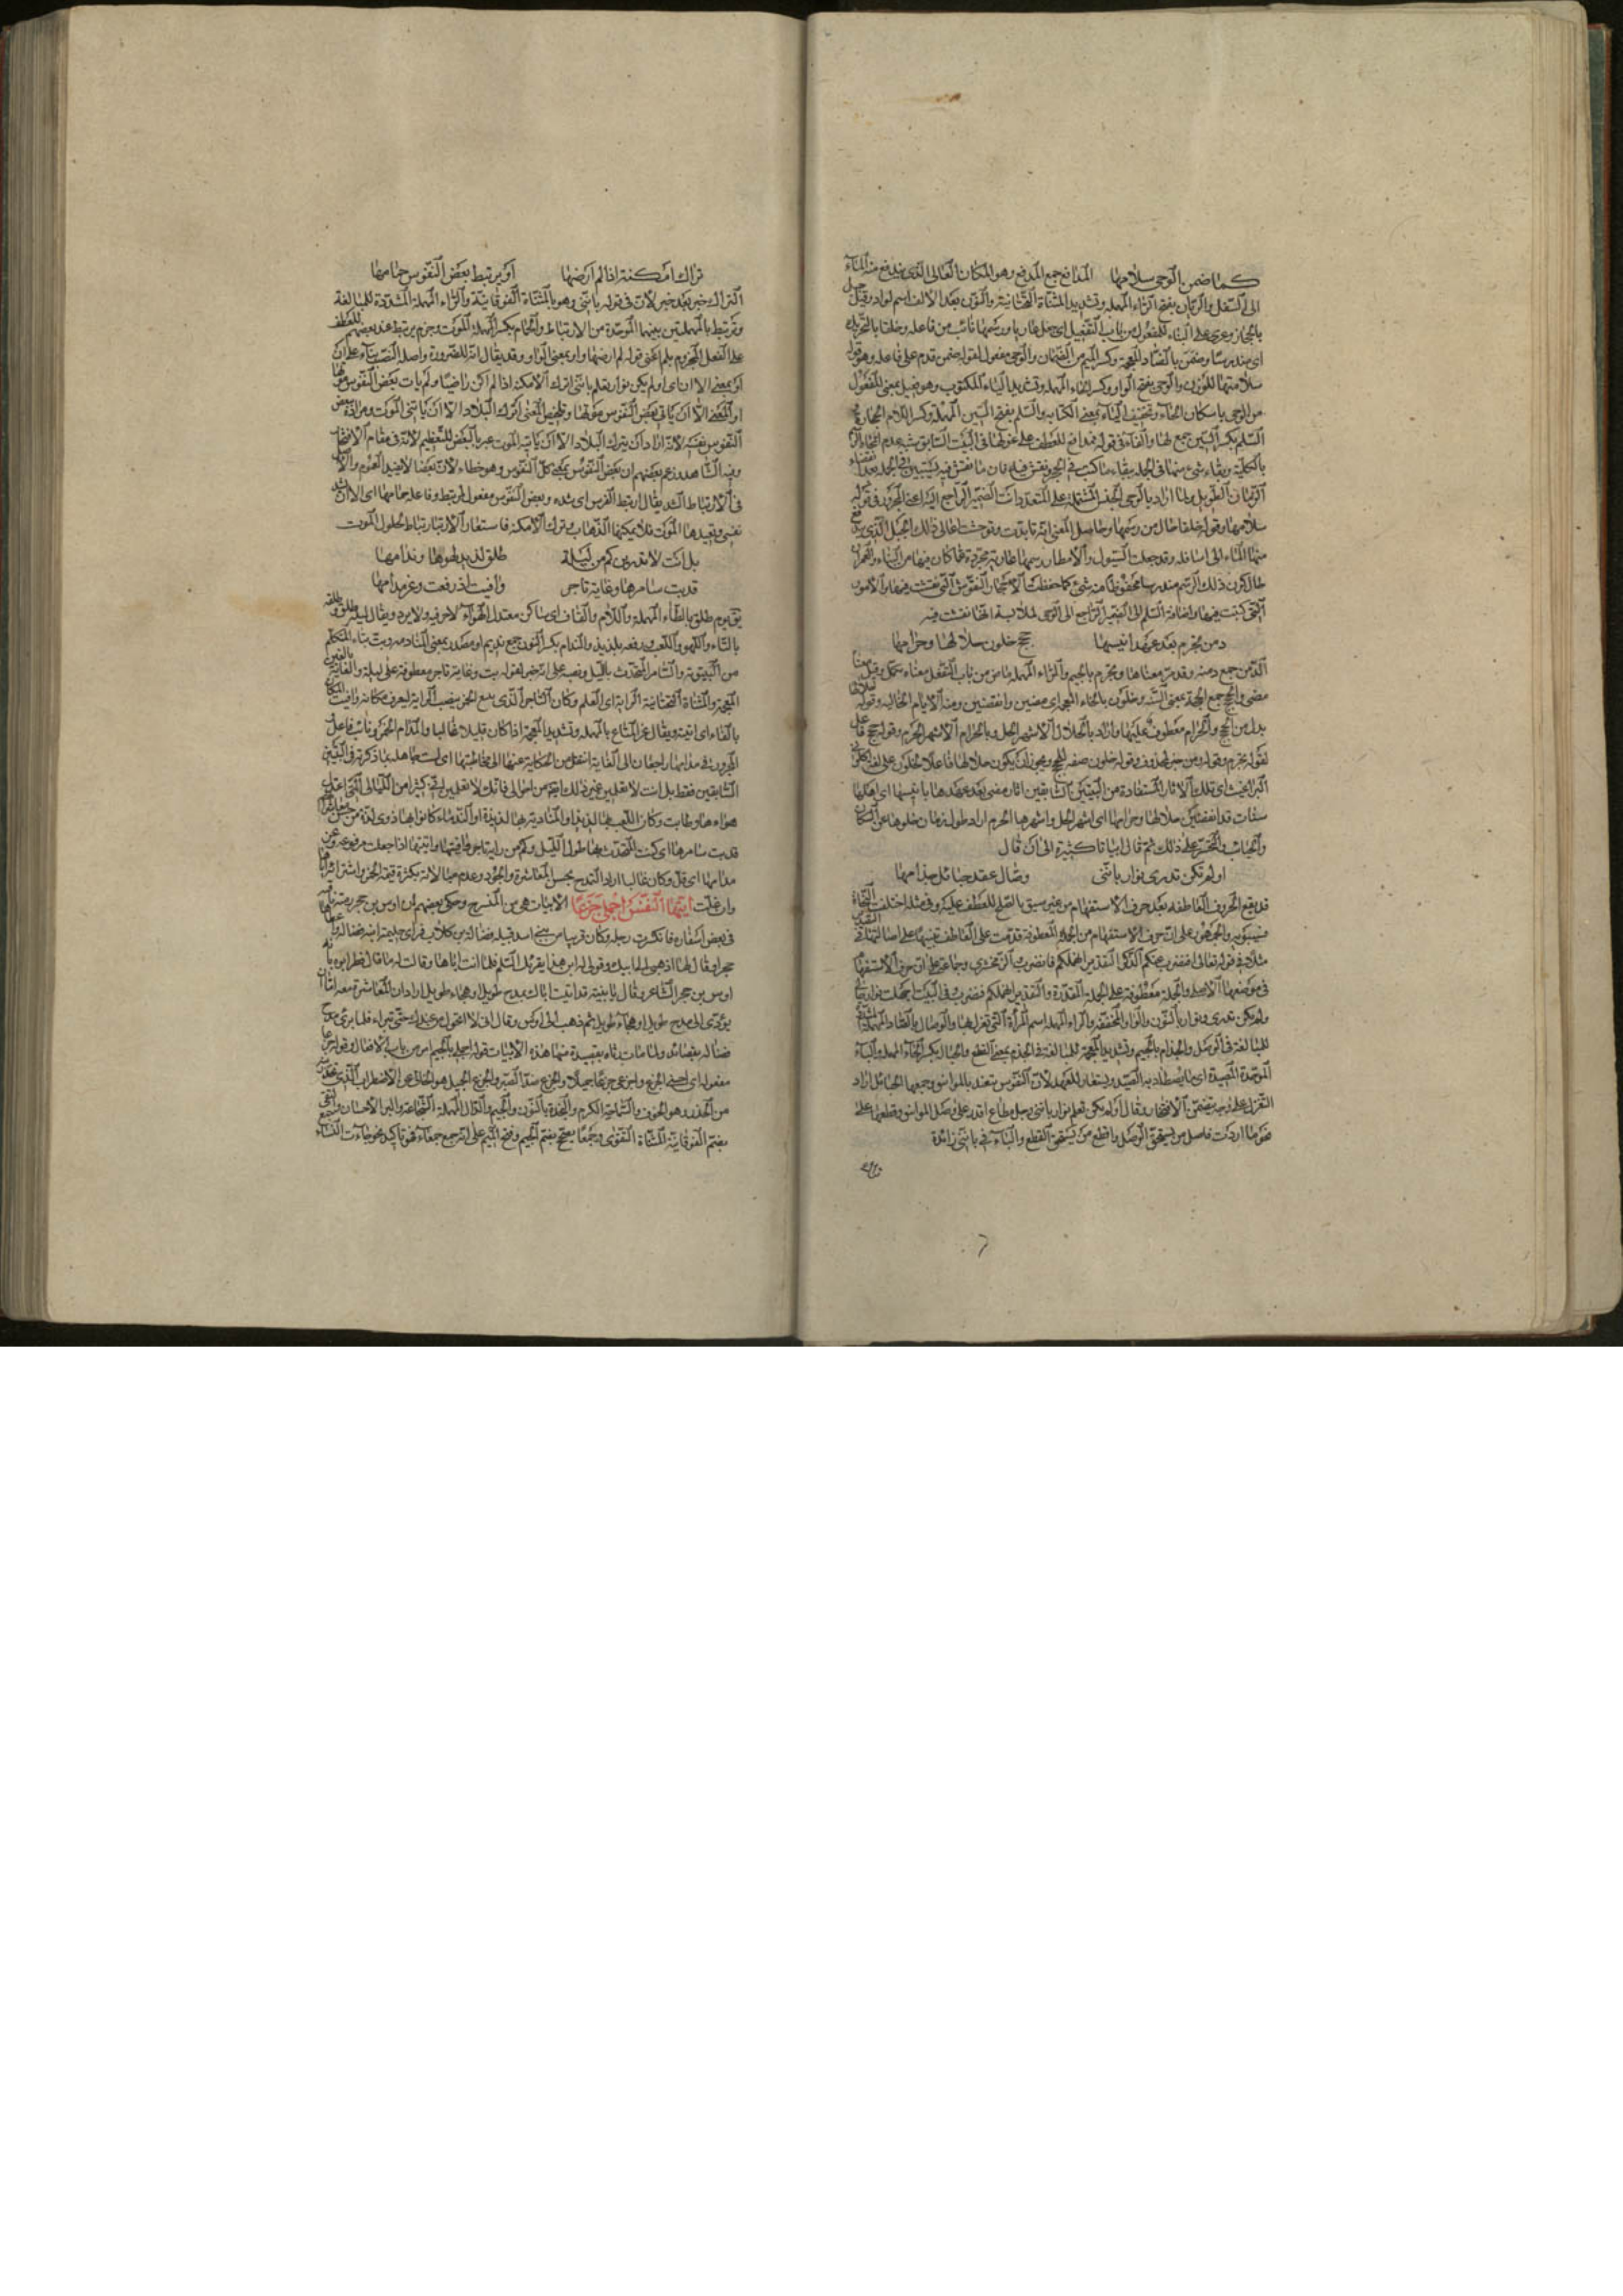 كما ضمن الوحى سلامها المدافع جمع المدفع وهو المكان العالى الذى يندفع منه الماء
الى السفل والريان بفتح الراء المهملة وتشديد المثناة التحتانية والنون بعد الالف اسم لواد وقيل جبل
اى مندرسا وضمن بالضاد المعجمة وكسر الميم من الضمان والوحى مفعول لقوله ضمن قدم على فاعله وهو قوله
سلامها للوزن والوحى بفتح الواو وكسر الحاء المهملة وتشديد الياء المكتوب وهو فعيل بمعنى المفعول
من الوحى باسكان الحاء وتخفيف الياء بمعنى الكتابة والسلم بفتح السين المهملة وكسر اللام الحجارة
الزمان الطويل
سلامها وقوله خلقا حال من رسمها وحاصل المعنى
منها الماء الى اسافله وقد جعلت السيول والامطار رسمها عارية مجردة عما كان فيها من البناء
حال كون ذلك الرسم مندرسا محفوظا منه شئ كما حفظت الاحجار النقوش التى نقشت فيها
التى كتبت فيها واضافة السلم الى الضمير الراجع الى الوحى لملابسة انها نقشت فيه
دمن تجرم بعد عهد انيسها حجج خلون حلالها وحرامها
الدمن جمع دمنة وقد مر معناها وتجرم بالجيم والراء المهملة ماض من باب التفعل معناه تكمل وقيل
مضى والحجج جمع الحجة بمعنى السنة وخلون بالخاء المعجمة اى مضين وانقضين ومنه الايام الخالية وقوله حلالها
بدل من الحجج والحرام معطوف عليها واراد بالحلال الاشهر الحل وبالحرام الاشهر الحرم وقوله حجج فاعل
لقوله تجرم وقوله دمن خبر محذوف وقوله خلون صفة للحجج ويجوز ان يكون حلالها فاعلا لخلون على لغة اكلونى
البراغيث اى تلك الآثار المستفادة من البيتين السابقين آثار مضى بعد عهدها بانيسها اى اهلها
سنوات قد انقضين حلالها وحرامها اى اشهر الحل واشهر الحرم اراد طول زمان خلوها عن السكان
والاحباب والتحسر على ذلك ثم قال ابياتا كثيرة الى ان قال
اولم تكن تدرى نوار باننى وصال عقد حبائل جذامها
قد يقع الحروف العاطفة بعد حرف الاستفهام من غير سبق ما يصلح للعطف عليه وفى مثله اختلف النحاة
فسيبويه والجمهور على ان حرف الاستفهام من الجملة المعطوفة قدمت على العاطف تنبيها على اصالتها
مثلا فى قوله تعالى افنضرب عنكم الذكر التقدير انهملكم فنضرب الزمخشرى وجماعة على ان حرف الاستفهام
فى موضعها الاصلى والجملة معطوفة على الجملة المقدرة والتقدير انهملكم فنضرب وفى البيت اجهلت نوار
ولم تكن تدرى ونوار بالنون والواو المخففة والراء المهملة اسم المرأة التى تغزل بها والوصال بالصاد المهملة
للمبالغة فى الوصل والجذام بالجيم وتشديد المعجمة للمبالغة فى الجذم بمعنى القطع والحبال بكسر الحاء المهملة والباء
الموحدة المصيدة اى ما يصطاد به الصيد ويستعار للعهد لان النفوس تنعقد بالمواثيق وجمعها الحبائل اراد
التغزل على وجه يتضمن الافتخار فقال اولم تكن تعلم نوار باننى رجل مطاع اقدر على وصل المواثيق وقطعها على
نحو ما اردت فاصل من يستحق الوصل واقطع من يستحق القطع والباء فى باننى زائدة
تراك
تراك امكنة اذا لم ارضها او يرتبط بعض النفوس حمامها
التراك خبر بعد خبر لان فى قوله باننى وهو بالمثناة الفوقانية والراء المهملة المشددة للمبالغة
ويرتبط بالمهملتين بينهما الموحدة من الارتباط والحمام بكسر المهملة الموت وجزم يرتبط عند بعضهم للعطف
على الفعل المجزوم بلم اعنى قوله لم ارضها واو بمعنى الواو وقد يقال انه للضرورة واصله النصب بناء على ان
او بمعنى الا ان اى اولم تكن نوار تعلم باننى اترك الامكنة اذا لم اكن راضيا ولم يات بعض النفوس موتها
او المعنى الا ان ياتى بعض النفوس موتها وتلخيص المعنى اترك البلاد الا ان ياتينى الموت ومراده ببعض
النفوس نفسه لانه اراد ان يترك البلاد الا ان ياتيه الموت عبر بالبعض للتعظيم لانه فى مقام الافتخار
وفيه الشاهد وزعم بعضهم ان بعض النفوس بمعنى كل النفوس وهو خطاء لان بعضا لا يفيد العموم والاصل
فى الارتباط الشد يقال ارتبط الفرس اى شده وبعض النفوس مفعول ليرتبط وفاعله حمامها اى الا ان يشد
نفسى ويقيدها الموت فلا يمكنها الذهاب وترك الامكنة فاستعار الارتباط لحلول الموت
بل انت لا تدرين كم من ليلة طلق لذيذ لهوها وندامها
قد بت سامرها وغاية تاجر وافيت اذ رفعت وعز مدامها
يقال يوم طلق بالطاء المهملة واللام والقاف اى ساكن معتدل الهواء لا حر فيه ولا برد ويقال ليلة طلق وطلقة
بالتاء واللهو واللعب ورفعه بلذيذ والندام بكسر النون جمع نديم او مصدر بمعنى المنادمة وبت بتاء المتكلم
من البيتوتة والسامر المتحدث بالليل ونصبه على انه خبر لقوله بت وغاية تاجر معطوفة على ليلة والغاية بالغين
المعجمة والمثناة التحتانية الراية اى العلم وكان التاجر الذى يبيع الخمر ينصب الراية ليعرف مكانه وافيت
بالفاء اى اتيته ويقال عز المتاع بالمهملة وتشديد المعجمة اذا كان قليلا غالبا والمدام الخمر
السابقين فقط بل انت لا تعلمين غير ذلك ايضا من احوالى فانك لا تعلمين انى كثيرا من الليالى التى اعتدل
هواءها وطابت وكان اللعب بها لذيذا والمنادمة بها لذيذة او الندماء كانوا بها ذوى لذة
قد بت سامرها اى كنت المتحدث بها طول الليل وكم من راية تاجر وافيتها واتيتها اذا جعلت مرفوعة
مدامها اى قل وكان غاليا اراد التمدح بحسن المعاشرة والجود وعدم مبالاته بكثرة قيمة الخمر واشترائها
وان غلت ايتها النفس اجملى جزعا الابيات هى من المنسرح وحكى بعضهم ان اوس بن حجر
فى بعض اسفاره فانكسرت رجله وكان قريبا من بنى اسد قبيلة فضالة بن كلاب فراى حليمة ابنة فضالة
حجرا وقال لها اذهبى الى ابيك وقولى له ابن هذا يقرئك السلم فلما اتت اباها وقالت له ما قال نظر ابوه
اوس بن حجر الشاعر وقال يا بنية قد اتيت اباك بمدح طويل او هجاء طويل اراد ان المعاشرة معه
يؤدى الى مدح طويل او هجاء طويل ثم ذهب الى اوس وقال انى لا اتحول من عندك حتى تبراء فلما برئ مدح
فضالة بقصائد ولما مات رثاه بقصيدة منها هذه الابيات قوله اجملى بالجيم امر من باب الافعال وقوله جزعا
مفعوله اى احسنى الجزع واجزعى جزعا جميلا والجزع ضد الصبر والجزع الجميل هو الخالى عن الاضطراب الذى
من الحذر وهو الخوف والسماحة الكرم والنجدة بالنون والجيم والدال المهملة الشجاعة والبر الاحسان والتقى
بضم الفوقانية المثناة التقوى وجمعا بضم الجيم وفتح الميم على انه جمع جمعاء